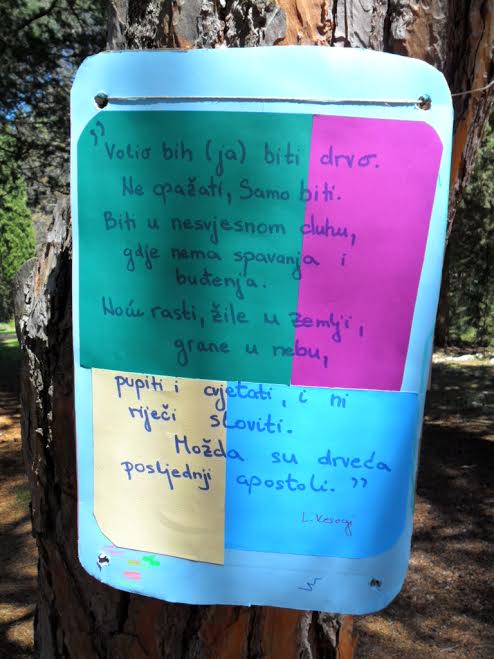 "Volio bih (ja) biti drvo.
Ne opažati, Samo biti.
Biti u nesvjesnom duhu,
gdje nema spavanja i
buđenja.
Noću rasti, žile u zemlji,
grane u nebu,
pupiti i cvjetati, i ni
riječi sloviti.
Možda su drveća
posljednji apostoli."
L. Kesegi